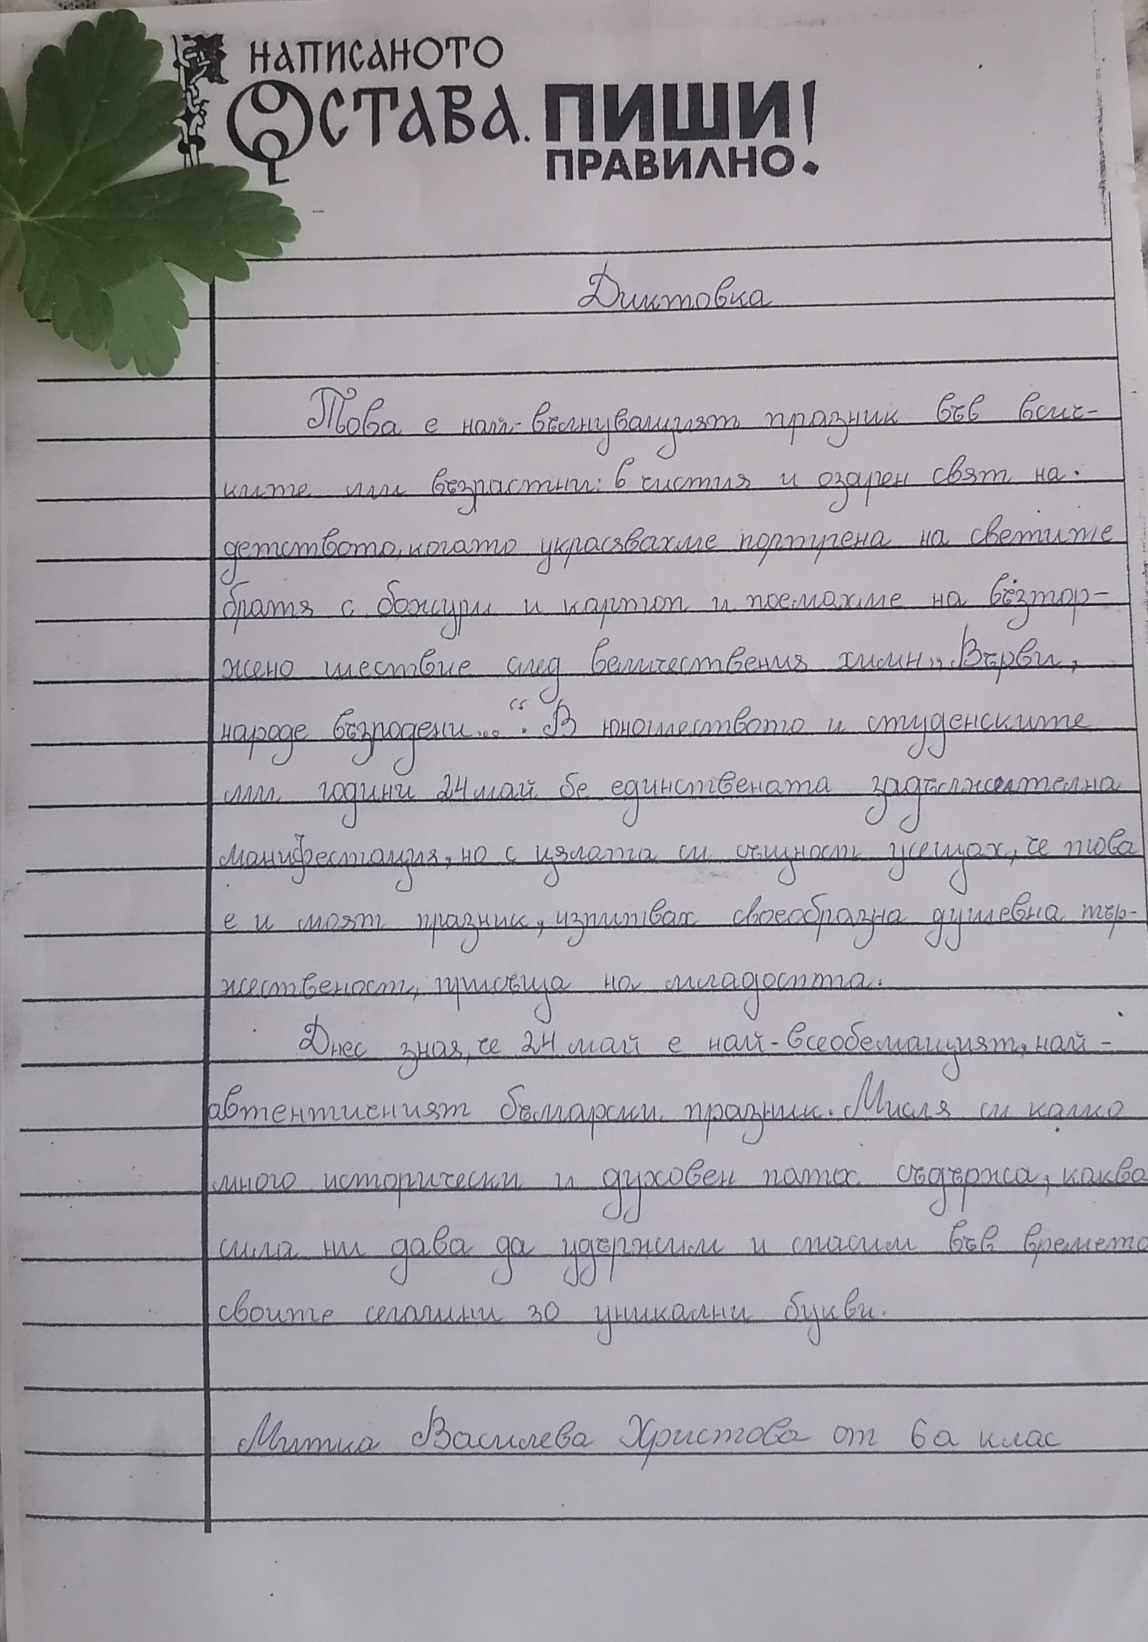 НАПИСАНОТО
ОСТАВА. ПИШИ!
ПРАВИЛНО.
Диктовка
Това е най-вълнуващият празник във всич-
ките ми възрасти: в чистия и озарен свят на
детството, когато украсявахме портрета на светите
братя с божури и картон и поемахме на възтор-
жено шествие след величествения химн „Върви,
народе възродени...“. В юношеството и студенските
ми години 24 май бе единствената задължителна
манифестация, но с цялата си същност усещах, че това
е и моят празник, изпитвах своеобразна душевна тър-
жественост, присъща на младостта.
Днес зная, че 24 май е най-всеобемащият, най-
автентичният български празник. Мисля си колко
много исторически и духовен патос съдържа, каква
сила ни дава да удържим и спасим във времето
своите сегашни 30 уникални букви.
Митка Василева Христова от 6а клас